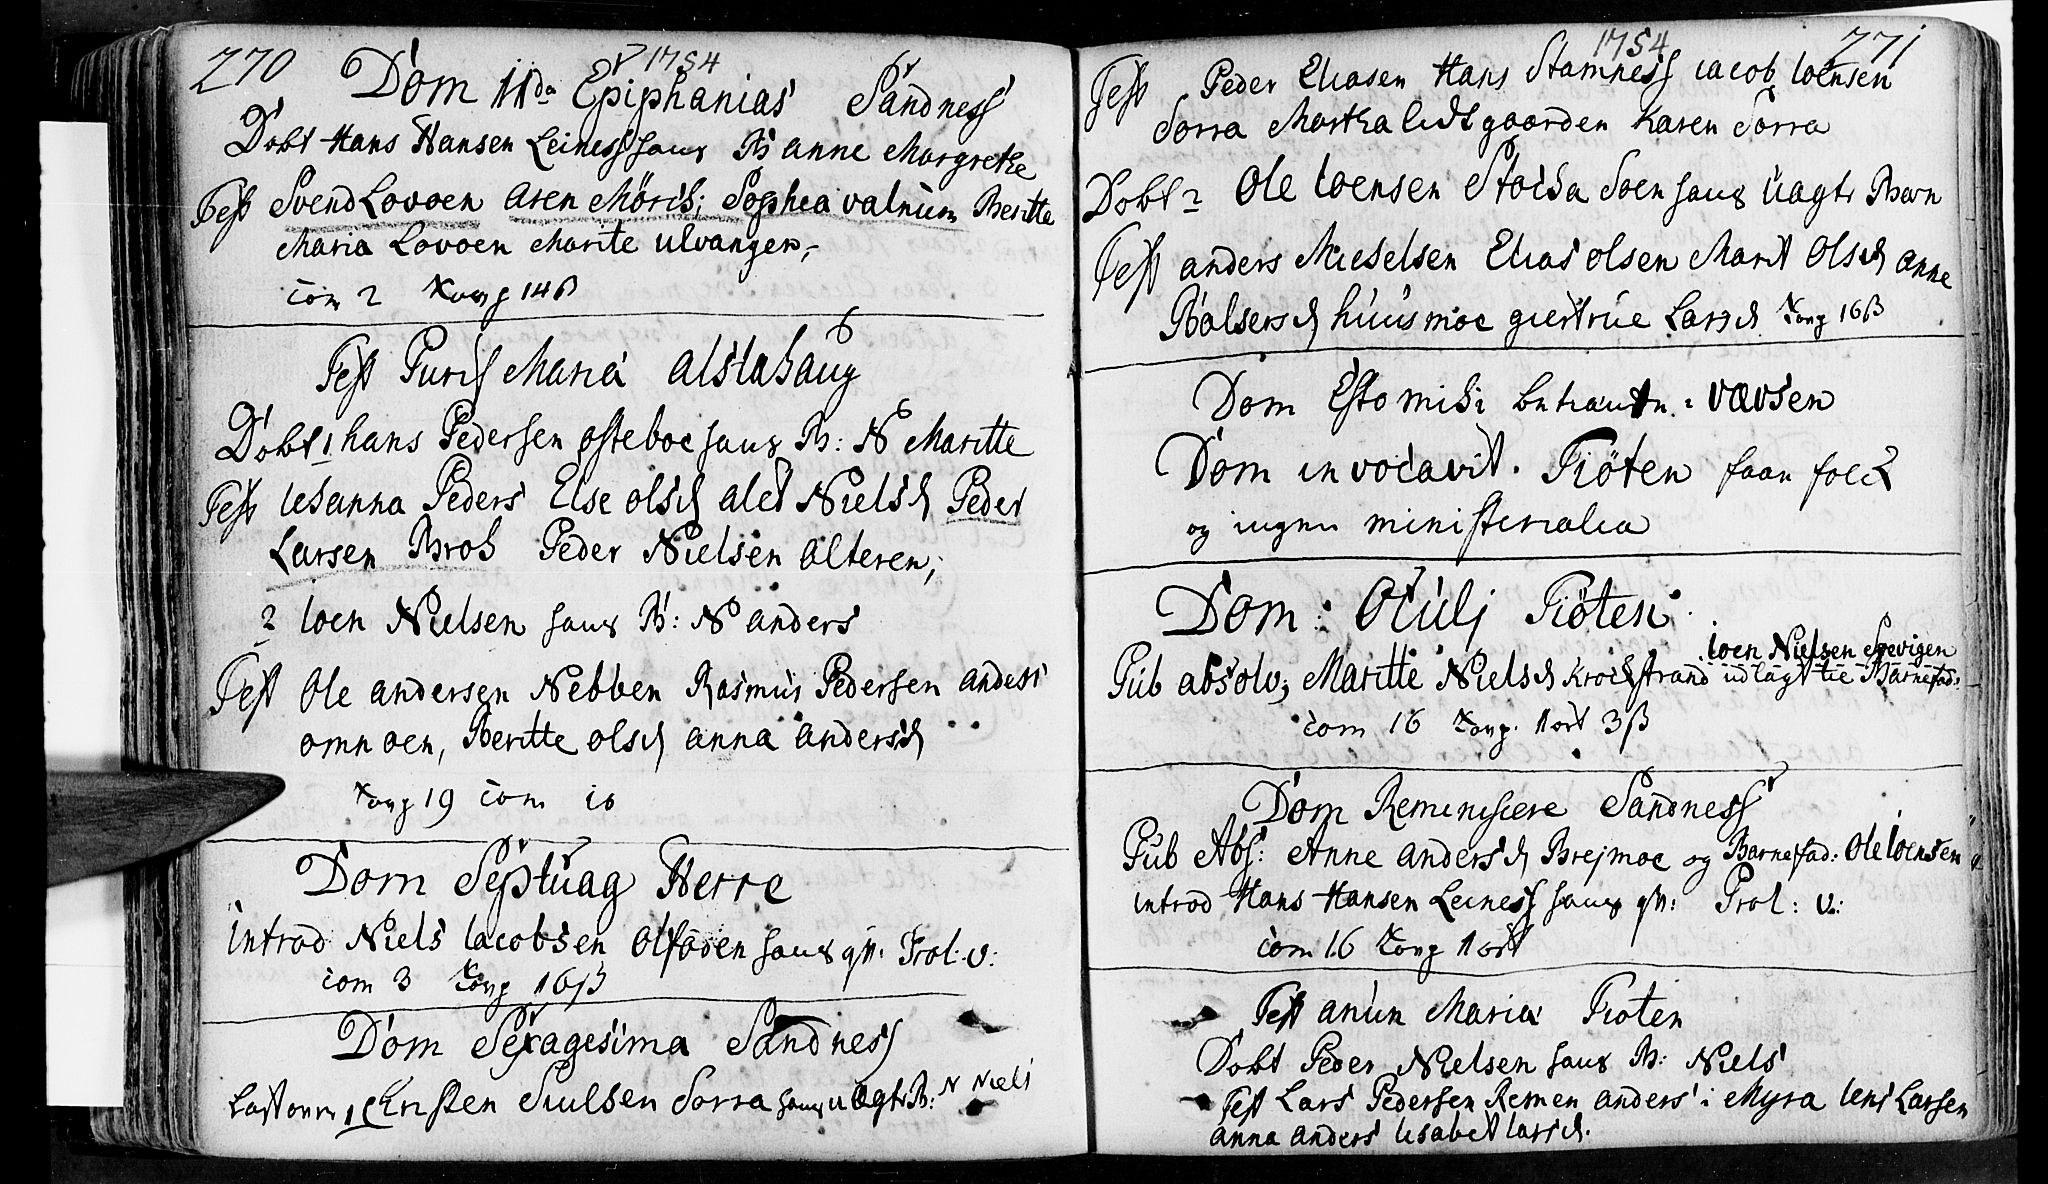 270
1754
Dom IIda Epiphanias Sandness
Døbt Hans Hansen Leiness hans B anne Margrethe
Test Svend Lovoen aren Mörch; Sophia valnum Beritte
Maria Lovoen Marite ulvangen,
Com 2 Tavg 14 ß
Fest Purif Mariæ alstahaug
Døbt 1 hans Pedersen østeboe hans B: N Maritte
Test Johanna Peders Else olsd alet Nielsd Peder
Larsen Broch Peder Nielsen alteren,
2 Joen Nielsen hans B: N anders
Test Ole andersen Nebben Rasmus Pedersen anders
omnoen, Beritte olsd anna andersd
Tavg 19 Com 10
Dom Septuag Herre
introd Niels Jacobsen hans qv: Trol: v:
Com 3 Tavg 16 ß
Dom Sexagesima Sandness
1 Christen Sorra hans uægte B: N Niels
1754
271
Test Peder Eliasen Hans Stamness Jacob Joensen
Sorra Martha leedsgaarden Karen Sorra
Døbt 2 Ole Joensen hans uægte Barn
Test anders Michelsen Elias olsen Marit Olsd anne
huusmoe giertrue Larsd Tavg 16 ß
Dom Esto mihi i vævsen
Dom invocavit. Tiöten faae folck
og ingen ministerialia
Dom: Oculj Tiöten
Joen Nielsen Sevigen
Pub absolv; Maritte Nielsd Krockstrand udlagt til Barnefad:
Com 16 Tavg. 1 ort 3 ß
Dom Reminiscere Sandness
Pub Abs: Anne andersd Brejmoe og Barnefad: Ole Joensen
introd Hans Hansen Leiness hans qv: Trol: v:
Com 16 Tavg 1 ort
Fest anun Mariæ Tioten
Døbt Peder Nielsen hans B: Niels
Test Lars Pedersen Remen anders i Myra Jens Larsen
anna anders lisabet larsd.